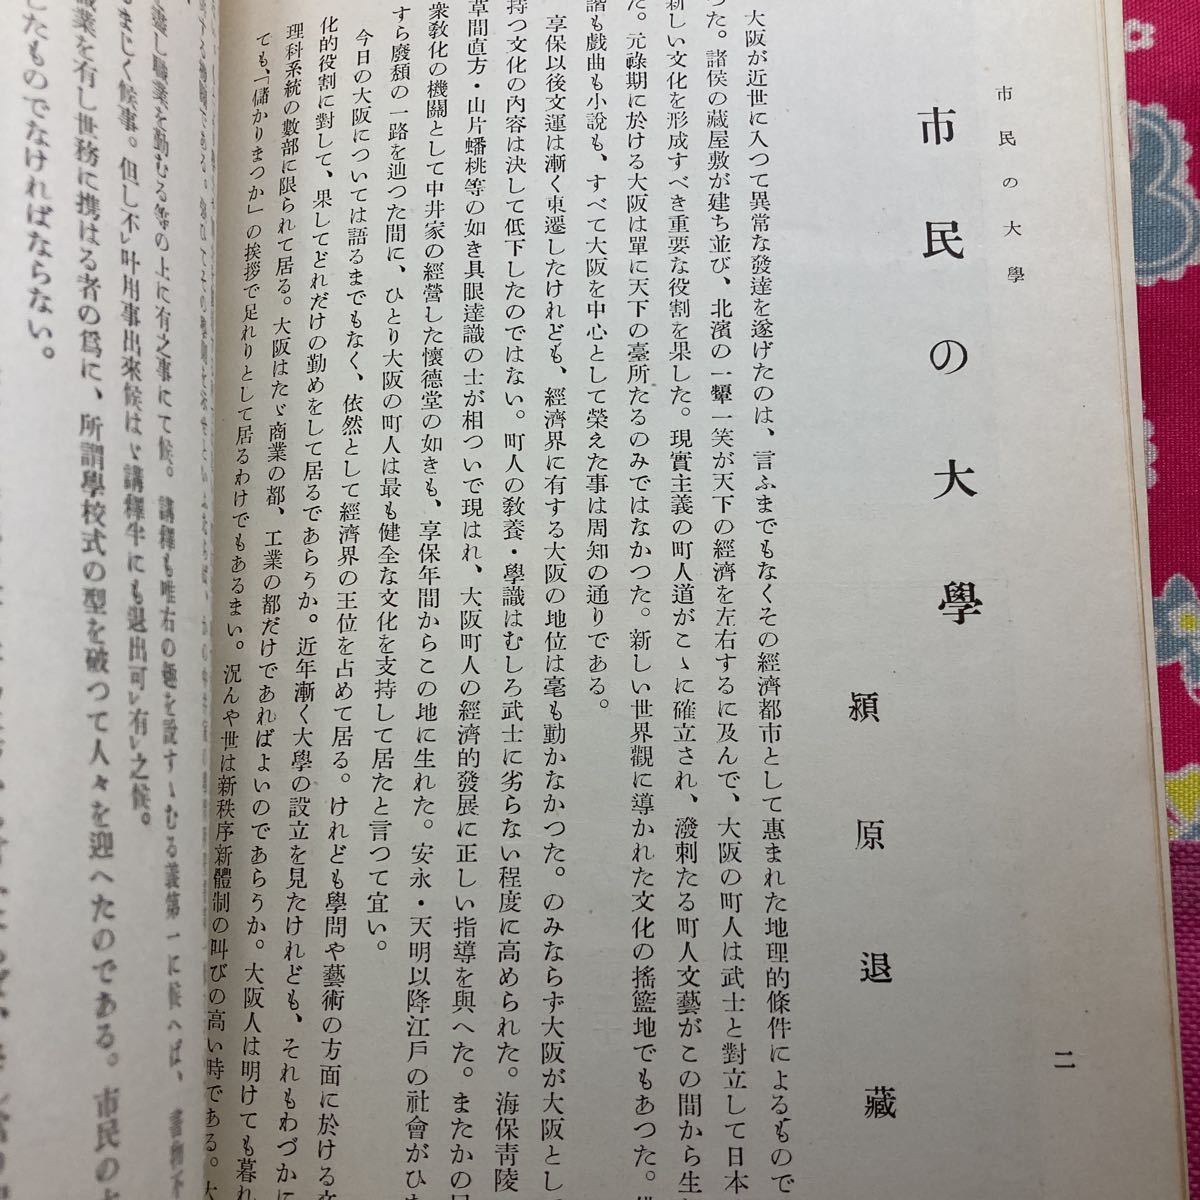 市民の大學
二
市民の大學
潁原退藏
大阪が近世に入つて異常な發達を遂げたのは、言ふまでもなくその經濟都市として惠まれた地理的條件によるもので
つた。諸侯の藏屋敷が建ち並び、北濱の一顰一笑が天下の經濟を左右するに及んで、大阪の町人は武士と對立して日本
新しい文化を形成すべき重要な役割を果した。現實主義の町人道がこゝに確立され、潑刺たる町人文藝がこの間から生
た。元祿期に於ける大阪は單に天下の臺所たるのみではなかつた。新しい世界觀に導かれた文化の搖籃地でもあつた。
諧も戲曲も小說も、すべて大阪を中心として榮えた事は周知の通りである。
享保以後文運は漸く東遷したけれども、經濟界に有する大阪の地位は毫も動かなかつた。のみならず大阪が大阪として
持つ文化の內容は決して低下したのではない。町人の敎養・學識はむしろ武士に劣らない程度に高められた。海保靑陵
草間直方・山片蟠桃等の如き具眼達識の士が相ついで現はれ、大阪町人の經濟的發展に正しい指導を與へた。またかの民
衆敎化の機關として中井家の經營した懷德堂の如きも、享保年間からこの地に生れた。安永・天明以降江戶の社會がひた
すら廢頽の一路を辿つた間に、ひとり大阪の町人は最も健全な文化を支持して居たと言つて宜い。
今日の大阪については語るまでもなく、依然として經濟界の王位を占めて居る。けれども學問や藝術の方面に於ける文
化的役割に對して、果してどれだけの勤めをして居るであらうか。近年漸く大學の設立を見たけれども、それもわづかに
理科系統の數部に限られて居る。大阪はたゞ商業の都、工業の都だけであればよいのであらうか。大阪人は明けても暮れ
ても、「儲かりまつか」の挨拶で足れりとして居るわけでもあるまい。況んや世は新秩序新體制の叫びの高い時である。大
等の上に有之事にて候。講釋も唯右の趣を說すゝむる義第一に候へば、書物不
まじく候事。但し不レ叶用事出來候はゞ講釋半にも退出可レ有レ之候。
職業を有し世務に携はる者の爲に、所謂學校式の型を破つて人々を迎へたのである。市民の
したものでなければならない。